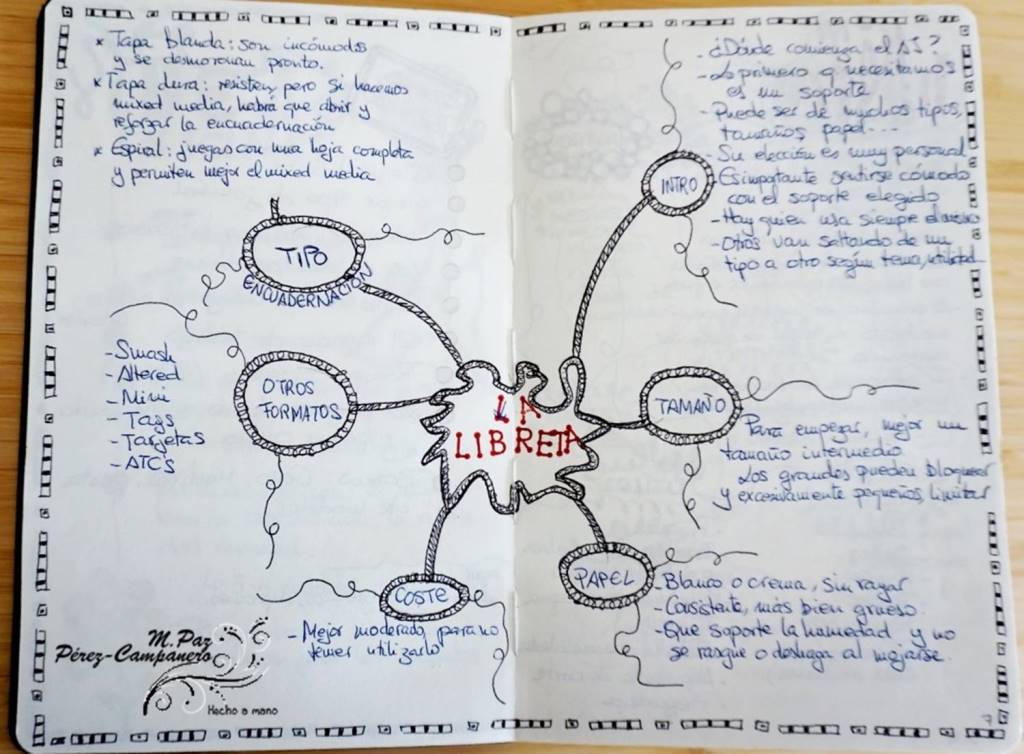 * Tapa blanda: son incómodas
y se desmoronan pronto.
* Tapa dura: resisten, pero si hacemos
mixed media, habrá que abrir y
reforzar la encuadernación
* Espiral: juegas con una hoja completa
y permiten mejor el mixed media
TIPO
ENCUADERNACIÓN
OTROS
FORMATOS
- Smash
- Altered
- Mini
- Tags
- Targetas
- ATC's
COSTE
- Mejor moderado, para no
temer utilizarlo
M.Paz
Pérez-Campanero
Hecho a mano
LA
LIBRETA
INTRO
- ¿Dónde comienza el AJ?
- Lo primero q necesitamos
es un soporte
- Puede ser de muchos tipos,
tamaños, papel...
- Su elección es muy personal
- Es importante sentirse cómodo
con el soporte elegido
- Hay quien usa siempre el mismo
- Otros van saltando de un
tipo a otro según tema, utilidad
TAMAÑO
Para empezar, mejor un
tamaño intermedio.
Los grandes pueden bloquear
y excesivamente pequeños, limitar
PAPEL
- Blanco o crema, sin rayar
- Consistente, más bien grueso.
- Que soporte la humedad, y no
se rasgue o deshaga al mojarse.
7